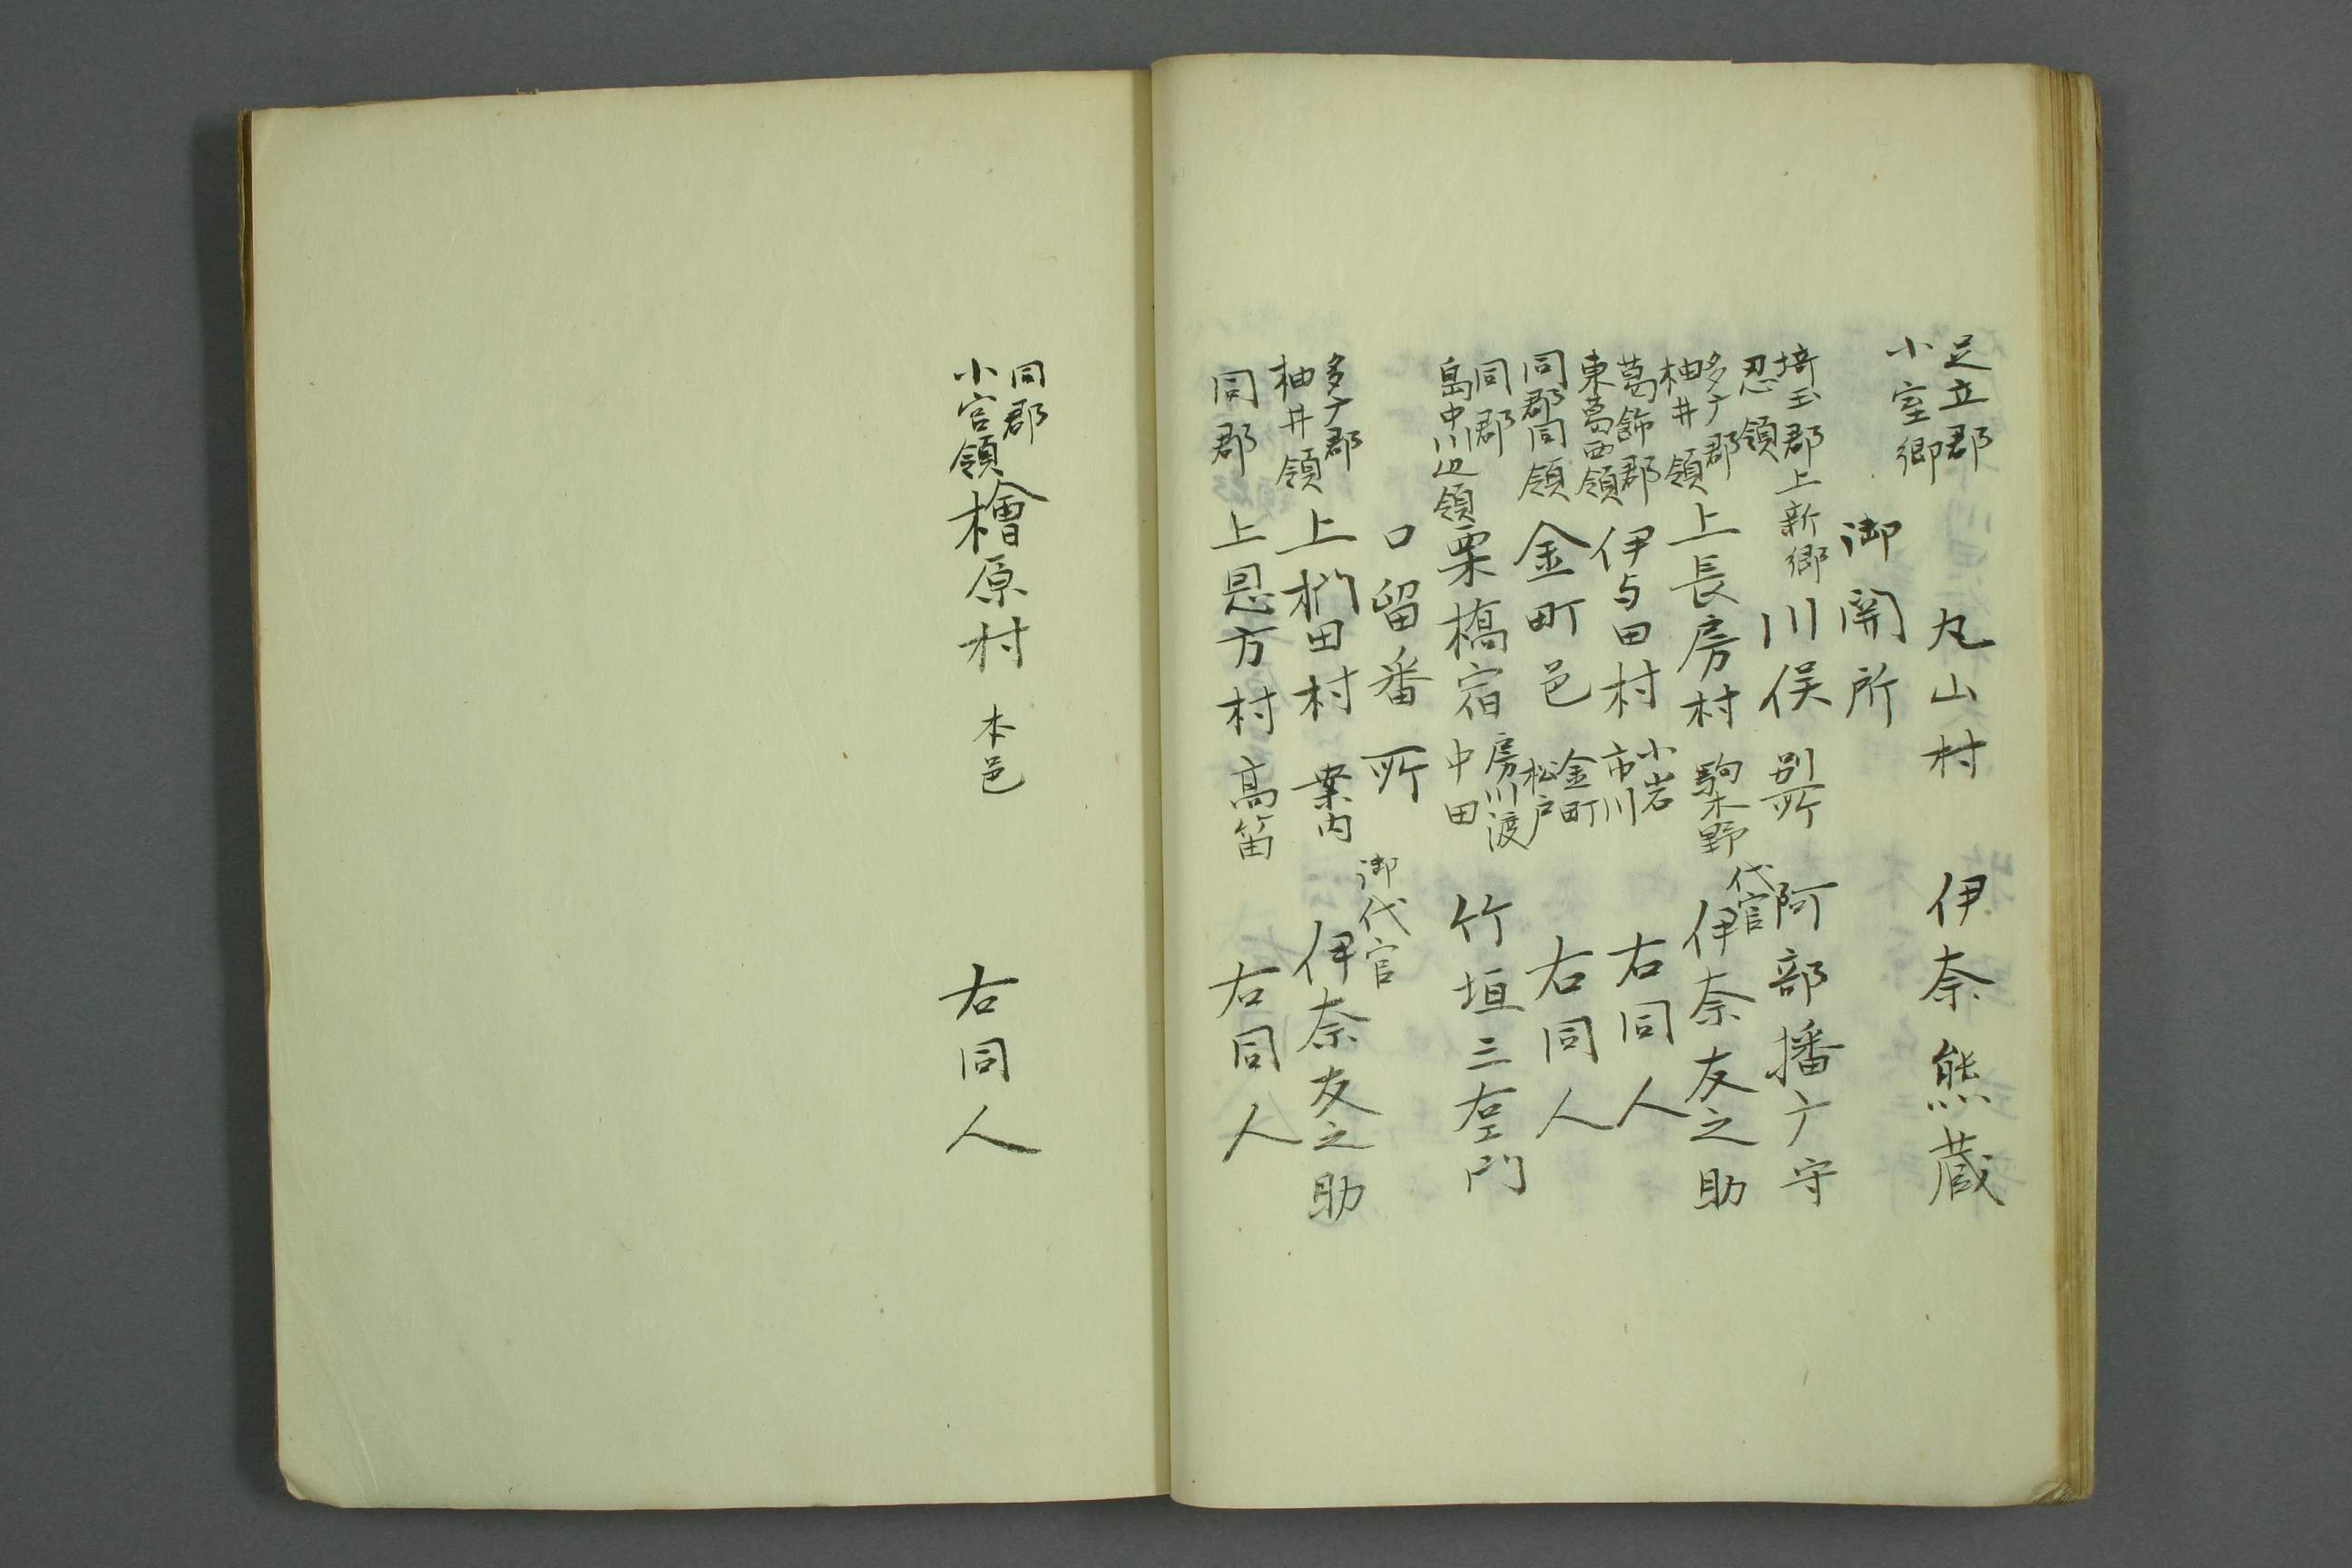 足立郡
小室郷
丸山村　伊奈熊蔵
御関所
埼玉郡上新郷
忍領
川俣　別所　阿部播广守
多广郡
柚井領
上長房村　駒木野　代官　伊奈友之助
葛飾郡
東葛西領
伊与田村　小岩
市川
右同人
同郡同領　金町邑　金町
松戸
右同人
同郡
島中川辺領
栗橋宿　房川渡
中田
竹垣三右エ門
口留番所　御代官
多广郡
柚井領
上椚田村　案内　伊奈友之助
同郡　上恩方村　高笛　右同人
同郡
小宮領
檜原村　本邑　右同人